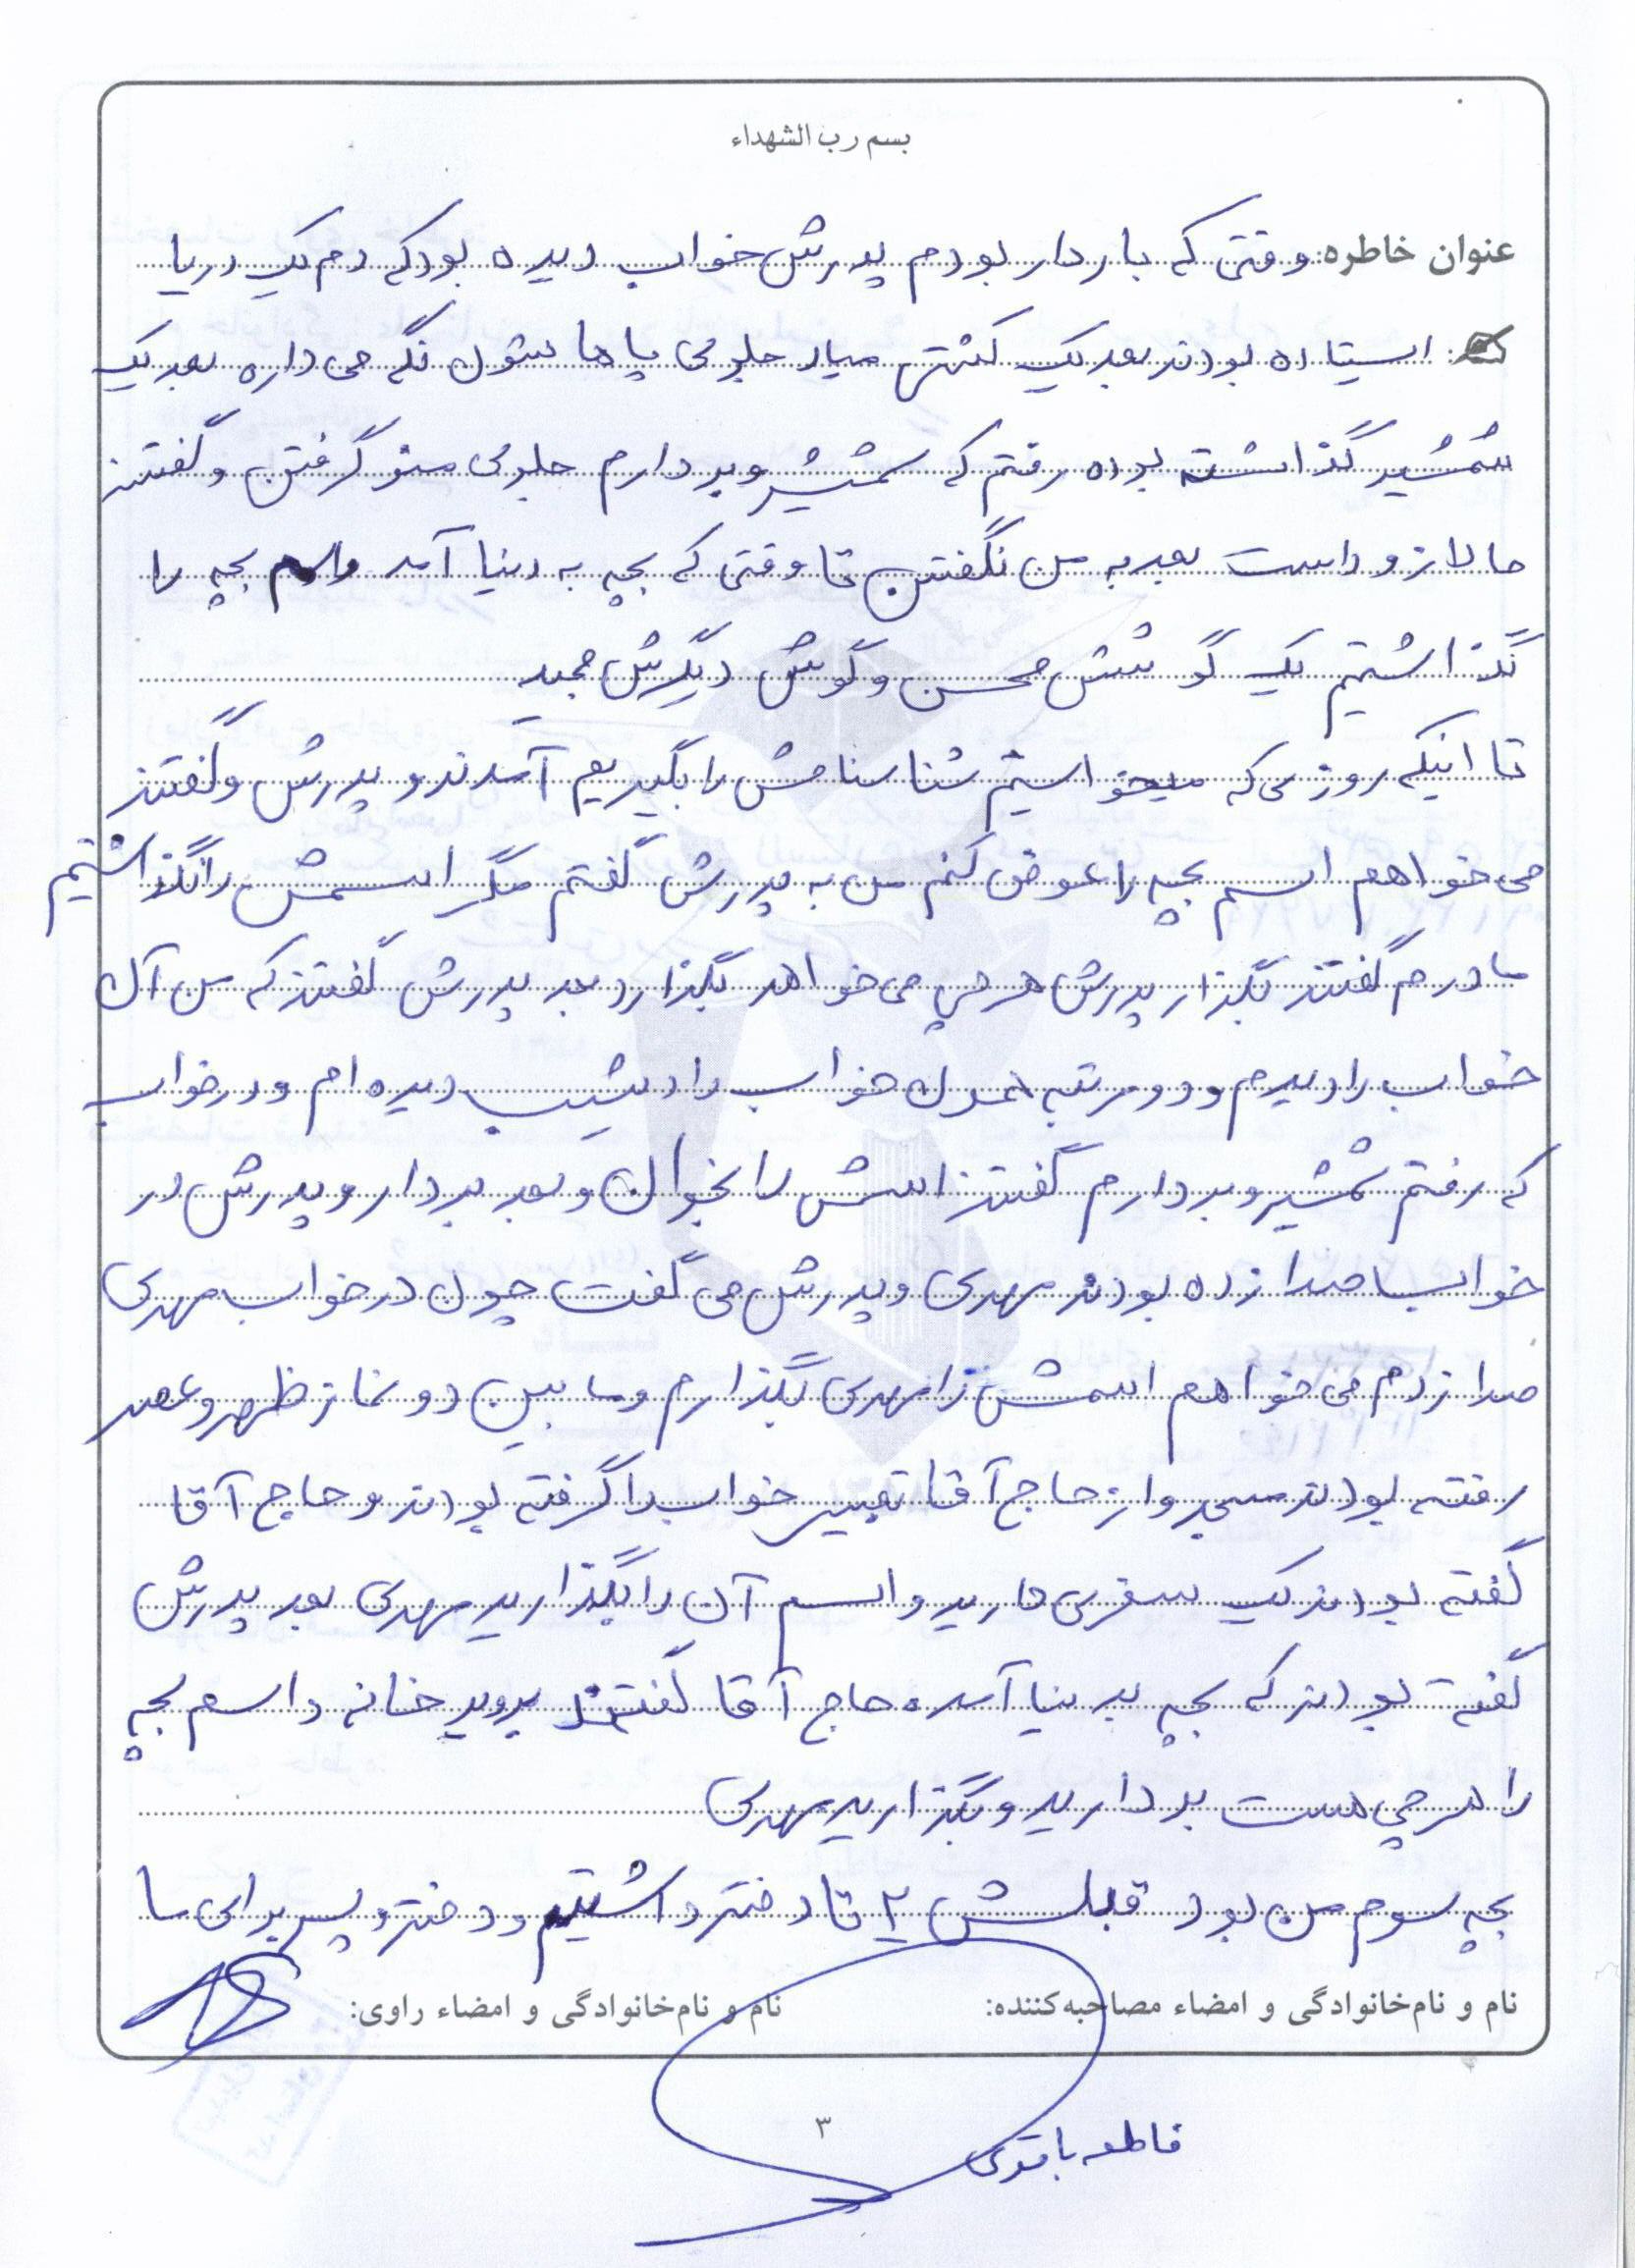 بسم رب الشهداء
عنوان خاطره: وقتی که باردار بودم پدرش خواب دیده بود که دم یک دریا
ایستاده بودند بعد یک کشتی میاد جلوی پاهاشون نگه می داره بعد یک
شمشیر گذاشته بوده رفتم که شمشیرو بردارم جلوی منو گرفتن و گفتند
حالا زود است بعد به من نگفتن تا وقتی که بچه به دنیا آمد و اسم بچه را
نگذاشتیم یک گوشش محسن و گوش دیگرش مجید
تا اینکه روزی که میخواستیم شناسنامش را بگیریم آمدند و پدرش و گفتند
می خواهم اسم بچه را عوض کنم من به پدرش گفتم مگر اسمش را نگذاشتیم
مادرم گفتند بگذار پدرش هرچی می خواهد بگذارد بعد پدرش گفتند که من آن
خواب را دیدم و دو مرتبه همون خواب را دیشب دیده ام و در خواب
که رفتم شمشیرو بردارم گفتند اسمش را بخوان و بعد بردار و پدرش در
خواب صدا زده بودند مهدی و پدرش می گفت چون در خواب مهدی
صدا زدم می خواهم اسمش را مهدی بگذارم و ما بین دو نماز ظهر و عصر
رفته بودند مسجد و از حاج آقا تعبیر خواب را گرفته بودند و حاج آقا
گفته بودند یک سفری دارید و اسم آن را بگذارید مهدی بعد پدرش
گفته بودند که بچه بدنیا آمده حاج آقا گفتند بروید خانه و اسم بچه
را هرچی هست بردارید و بگذارید مهدی
بچه سوم من بود قبلش ۲ تا دختر داشتیم و دختر و پسر برای ما
نام و نام خانوادگی و امضاء مصاحبه کننده: نام و نام خانوادگی و امضاء راوی:
۳
فاطمه باقری